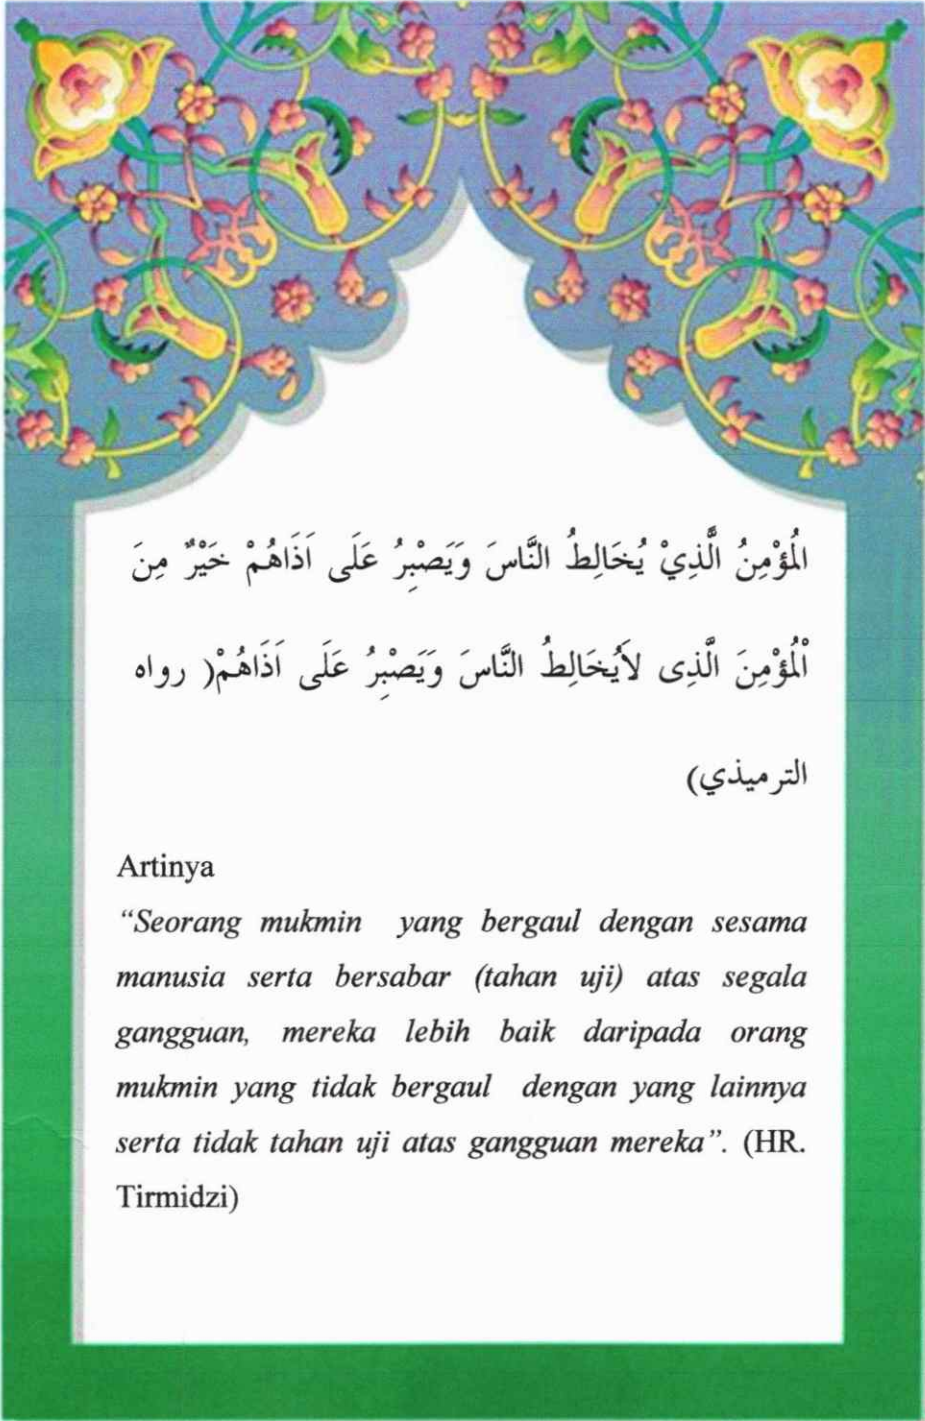 الُمُؤْمِنُ الَّذِيْ يُخَالِطُ النَّاسَ وَيَصْبِرُ عَلَى اَذَاهُمْ خَيْرٌ مِنَ
اْلُمُؤْمِنَ الَّذِى لاَيُخَالِطُ النَّاسَ وَيَصْبِرُ عَلَى اَذَاهُمْ( رواه
الترميذي)
Artinya
“Seorang mukmin yang bergaul dengan sesama
manusia serta bersabar (tahan uji) atas segala
gangguan, mereka lebih baik daripada orang
mukmin yang tidak bergaul dengan yang lainnya
serta tidak tahan uji atas gangguan mereka”. (HR.
Tirmidzi)